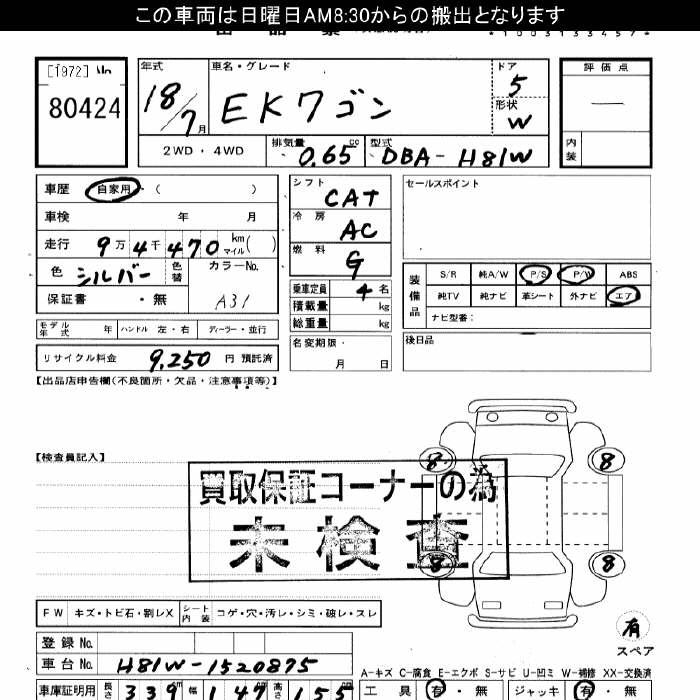 この車両は日曜日AM8:30からの搬出となります
[1972] No
80424
年式 18/7月
車名・グレード EKワゴン
ドア 5
形状 W
評価点 —
内装
2WD・4WD 排気量 0.65 cc 型式 DBA-H81W
車歴 自家用 ( )
車検 年 月
走行 9万4千470 km マイル ( )
色 シルバー 色替 カラーNo. A31
保証書 ・無
モデル年式 年 ハンドル 左・右 ディーラー・並行
リサイクル料金 9,250 円 預託済
シフト CAT
冷房 AC
燃料 G
乗車定員 4 名
積載量 kg
総重量 kg
名変期限・ 月 日
セールスポイント
装備品 S/R 純A/W P/S P/W ABS
純TV 純ナビ 革シート 外ナビ エア
ナビ型番:
後日品
【出品店申告欄(不良箇所・欠品・注意事項等)】
【検査員記入】
8 8
買取保証コーナーの為
未検査
8 8
FW キズ・トビ石・割レX シート内装 コゲ・穴・汚レ・シミ・破レ・スレ
有
スペア
登録 No.
車台 No. H81W-1520875
A-キズ C-腐食 E-エクボ S-サビ U-凹ミ W-補修 XX-交換済
車庫証明用 長さ 339 幅 147 高さ 155
工具 有・無 ジャッキ 有・無